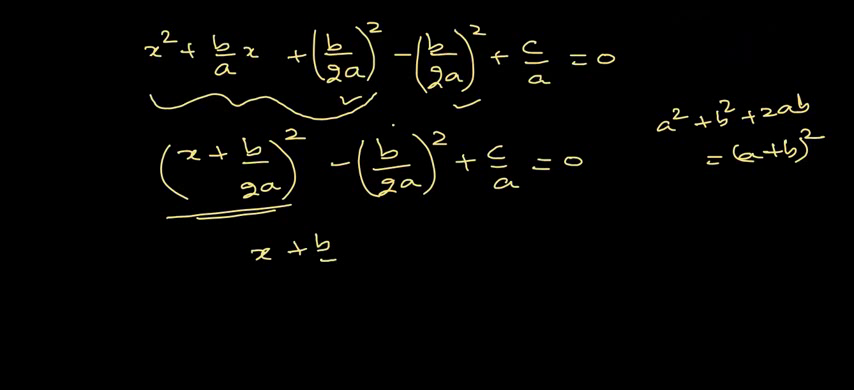 x² + b/a x + (b/2a)² - (b/2a)² + c/a = 0
(x + b/2a)² - (b/2a)² + c/a = 0
x + b
a² + b² + 2ab
= (a+b)²